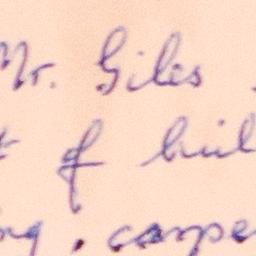 Mr. Giles
of buil
ing, carpe